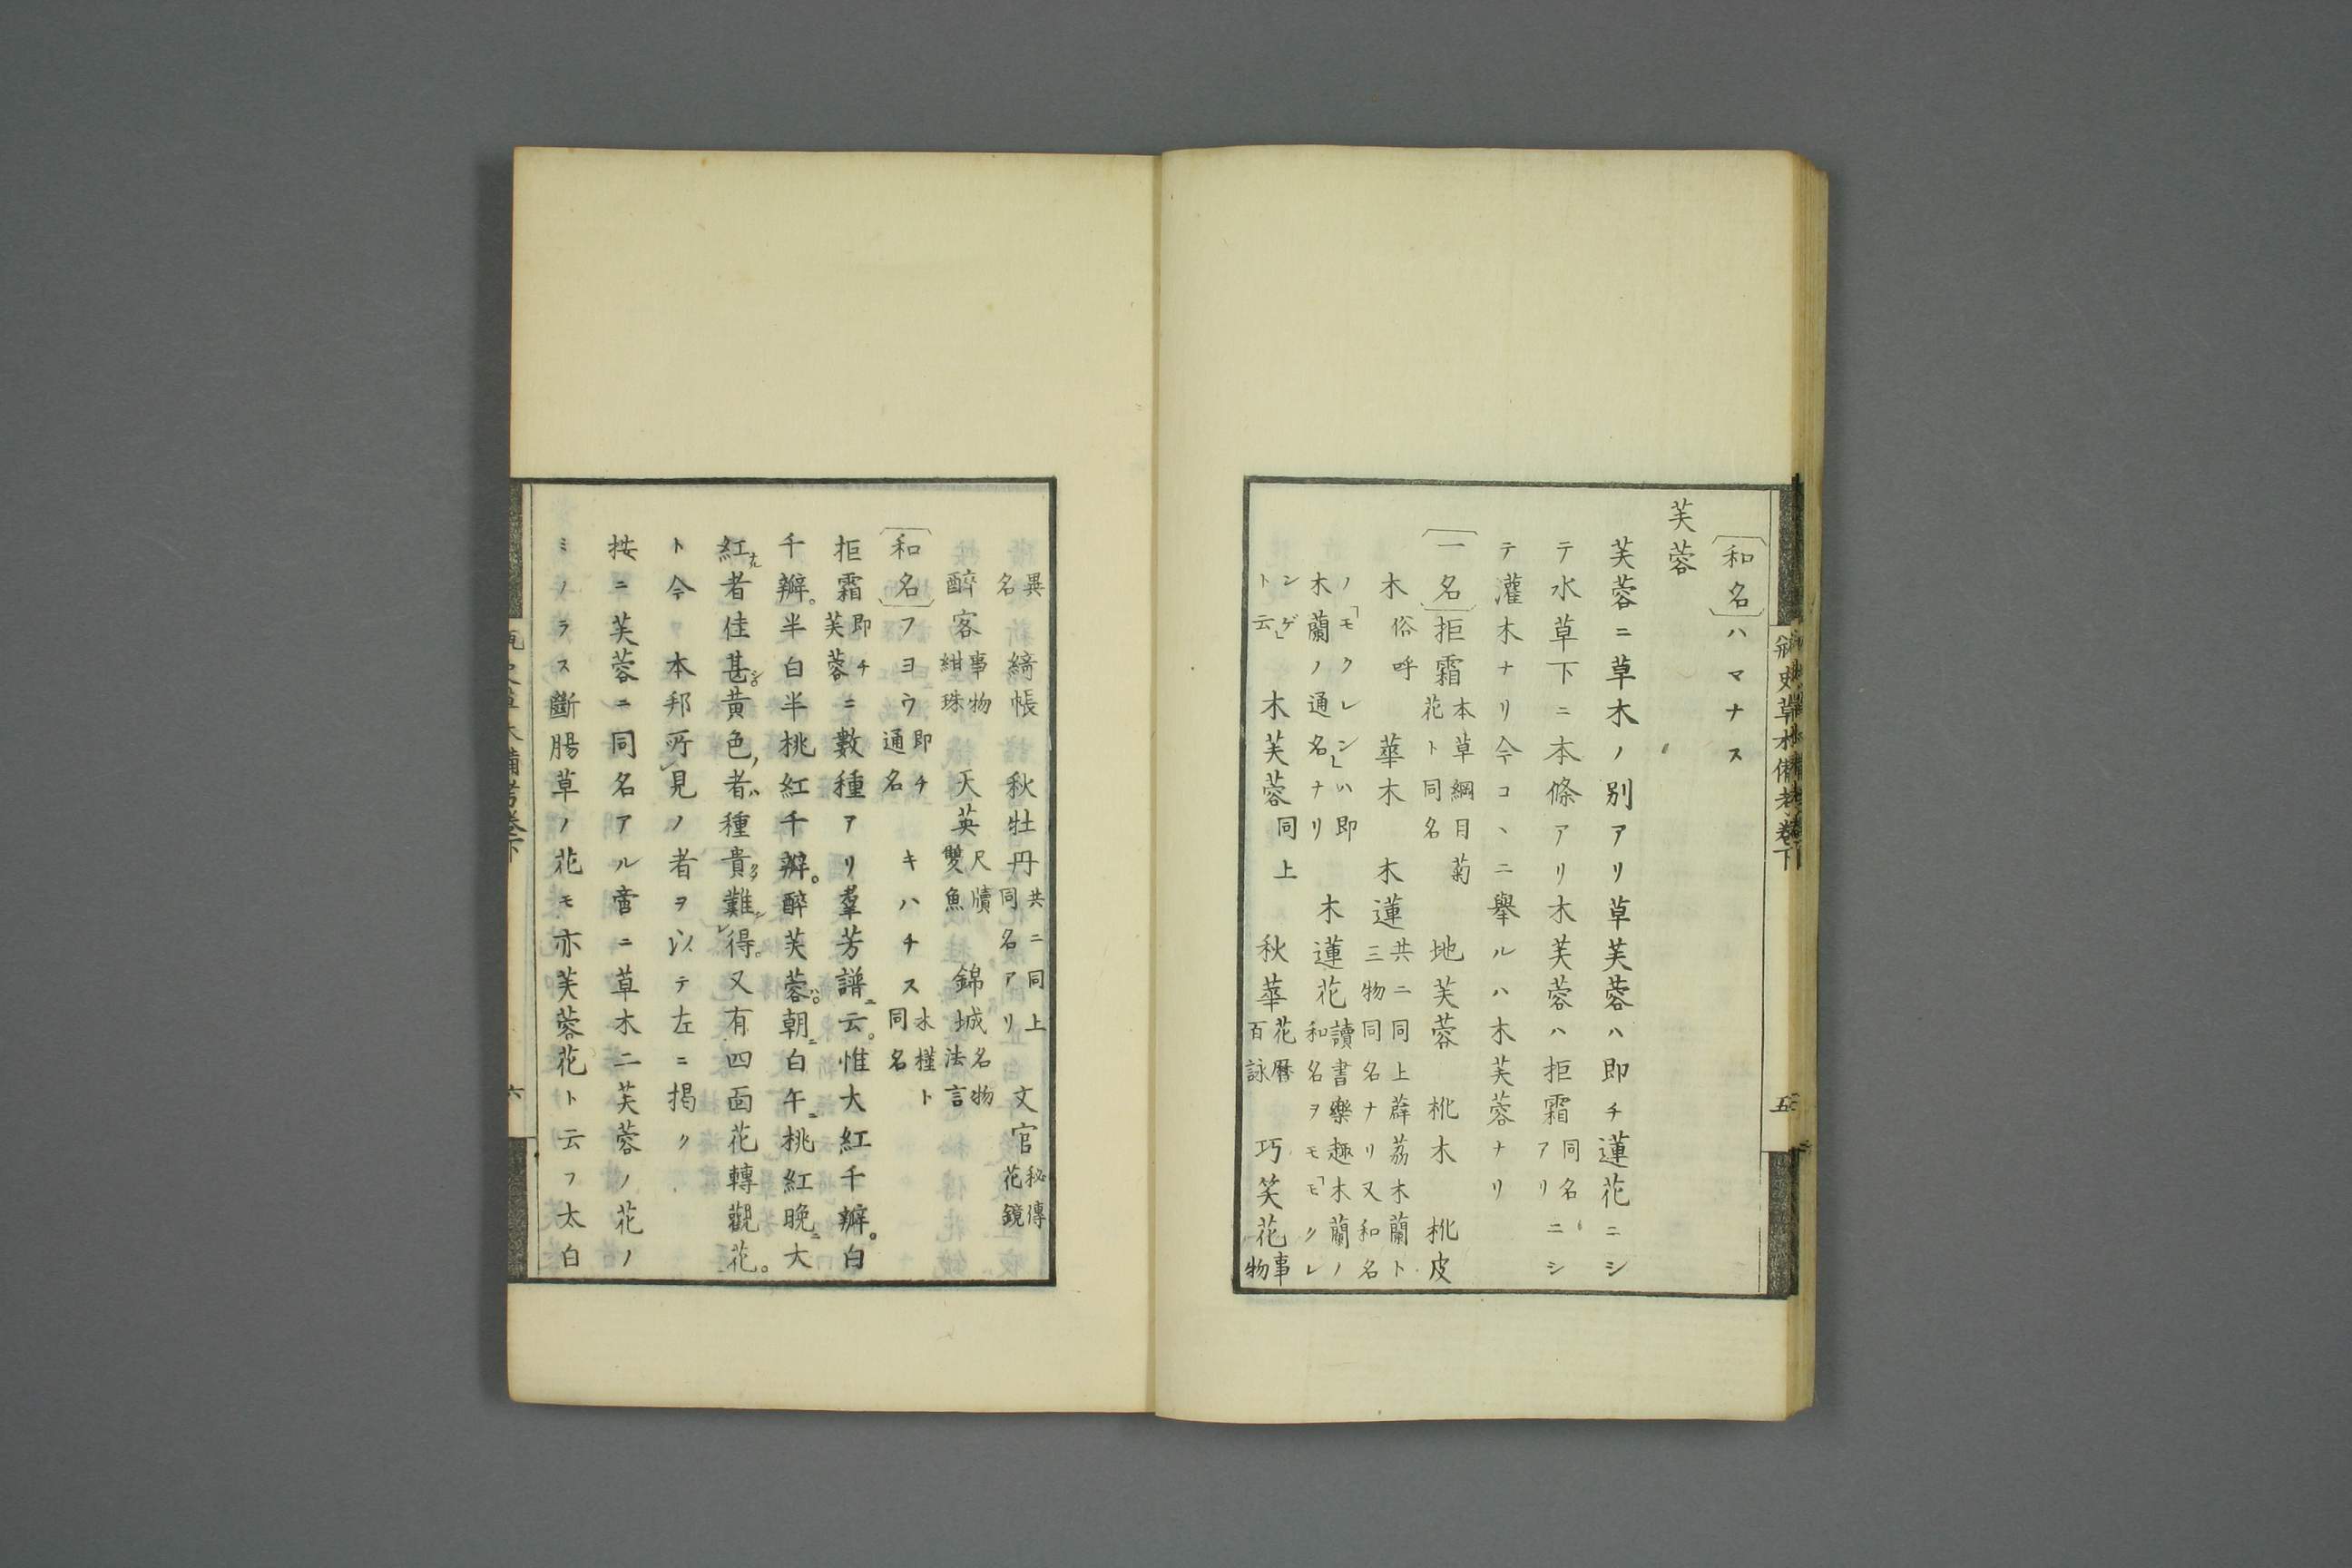 〔和名〕ハマナス
芙蓉
芙蓉ニ草木ノ別アリ草芙蓉ハ即チ蓮花ニシ
テ水草下ニ本條アリ木芙蓉ハ拒霜同名アリニシ
テ灌木ナリ今コヽニ擧ルハ木芙蓉ナリ
〔一名〕拒霜本草綱目菊花ト同名 地芙蓉 杹木 杹皮
木俗呼 華木 木蓮共ニ同上薜荔木蘭ト三物同名ナリ又和名
ノ「モクレン」ハ即木蘭ノ通名ナリ 木蓮花讀書樂趣木蘭ノ和名ヲモ「モクレ
ンゲ」ト云 木芙蓉同上 秋華花曆百詠 巧笑花事物
異名 綺帳 秋牡丹共ニ同上同名アリ 文官秘傳花鏡
醉客事物紺珠 天英尺牘雙魚 錦城名物法言
〔和名〕フヨウ即チ通名 キハチス木槿ト同名
拒霜即チ芙蓉ニ數種アリ羣芳譜ニ云。惟大紅千瓣。白
千瓣。半白半桃紅千瓣。醉芙蓉ハ。朝ニ白午ニ桃紅晩ニ大
紅ナル者佳甚シ黄色ノ者ハ種貴クシテ難シレ得。又有四面花轉觀花。
ト今本邦所レ見ノ者ヲ以テ左ニ揭ク
按ニ芙蓉ニ同名アル啻ニ草木二芙蓉ノ花ノ
ミノラス斷腸草ノ花モ亦芙蓉花ト云フ太白
瓶史草木備考卷下
五
六